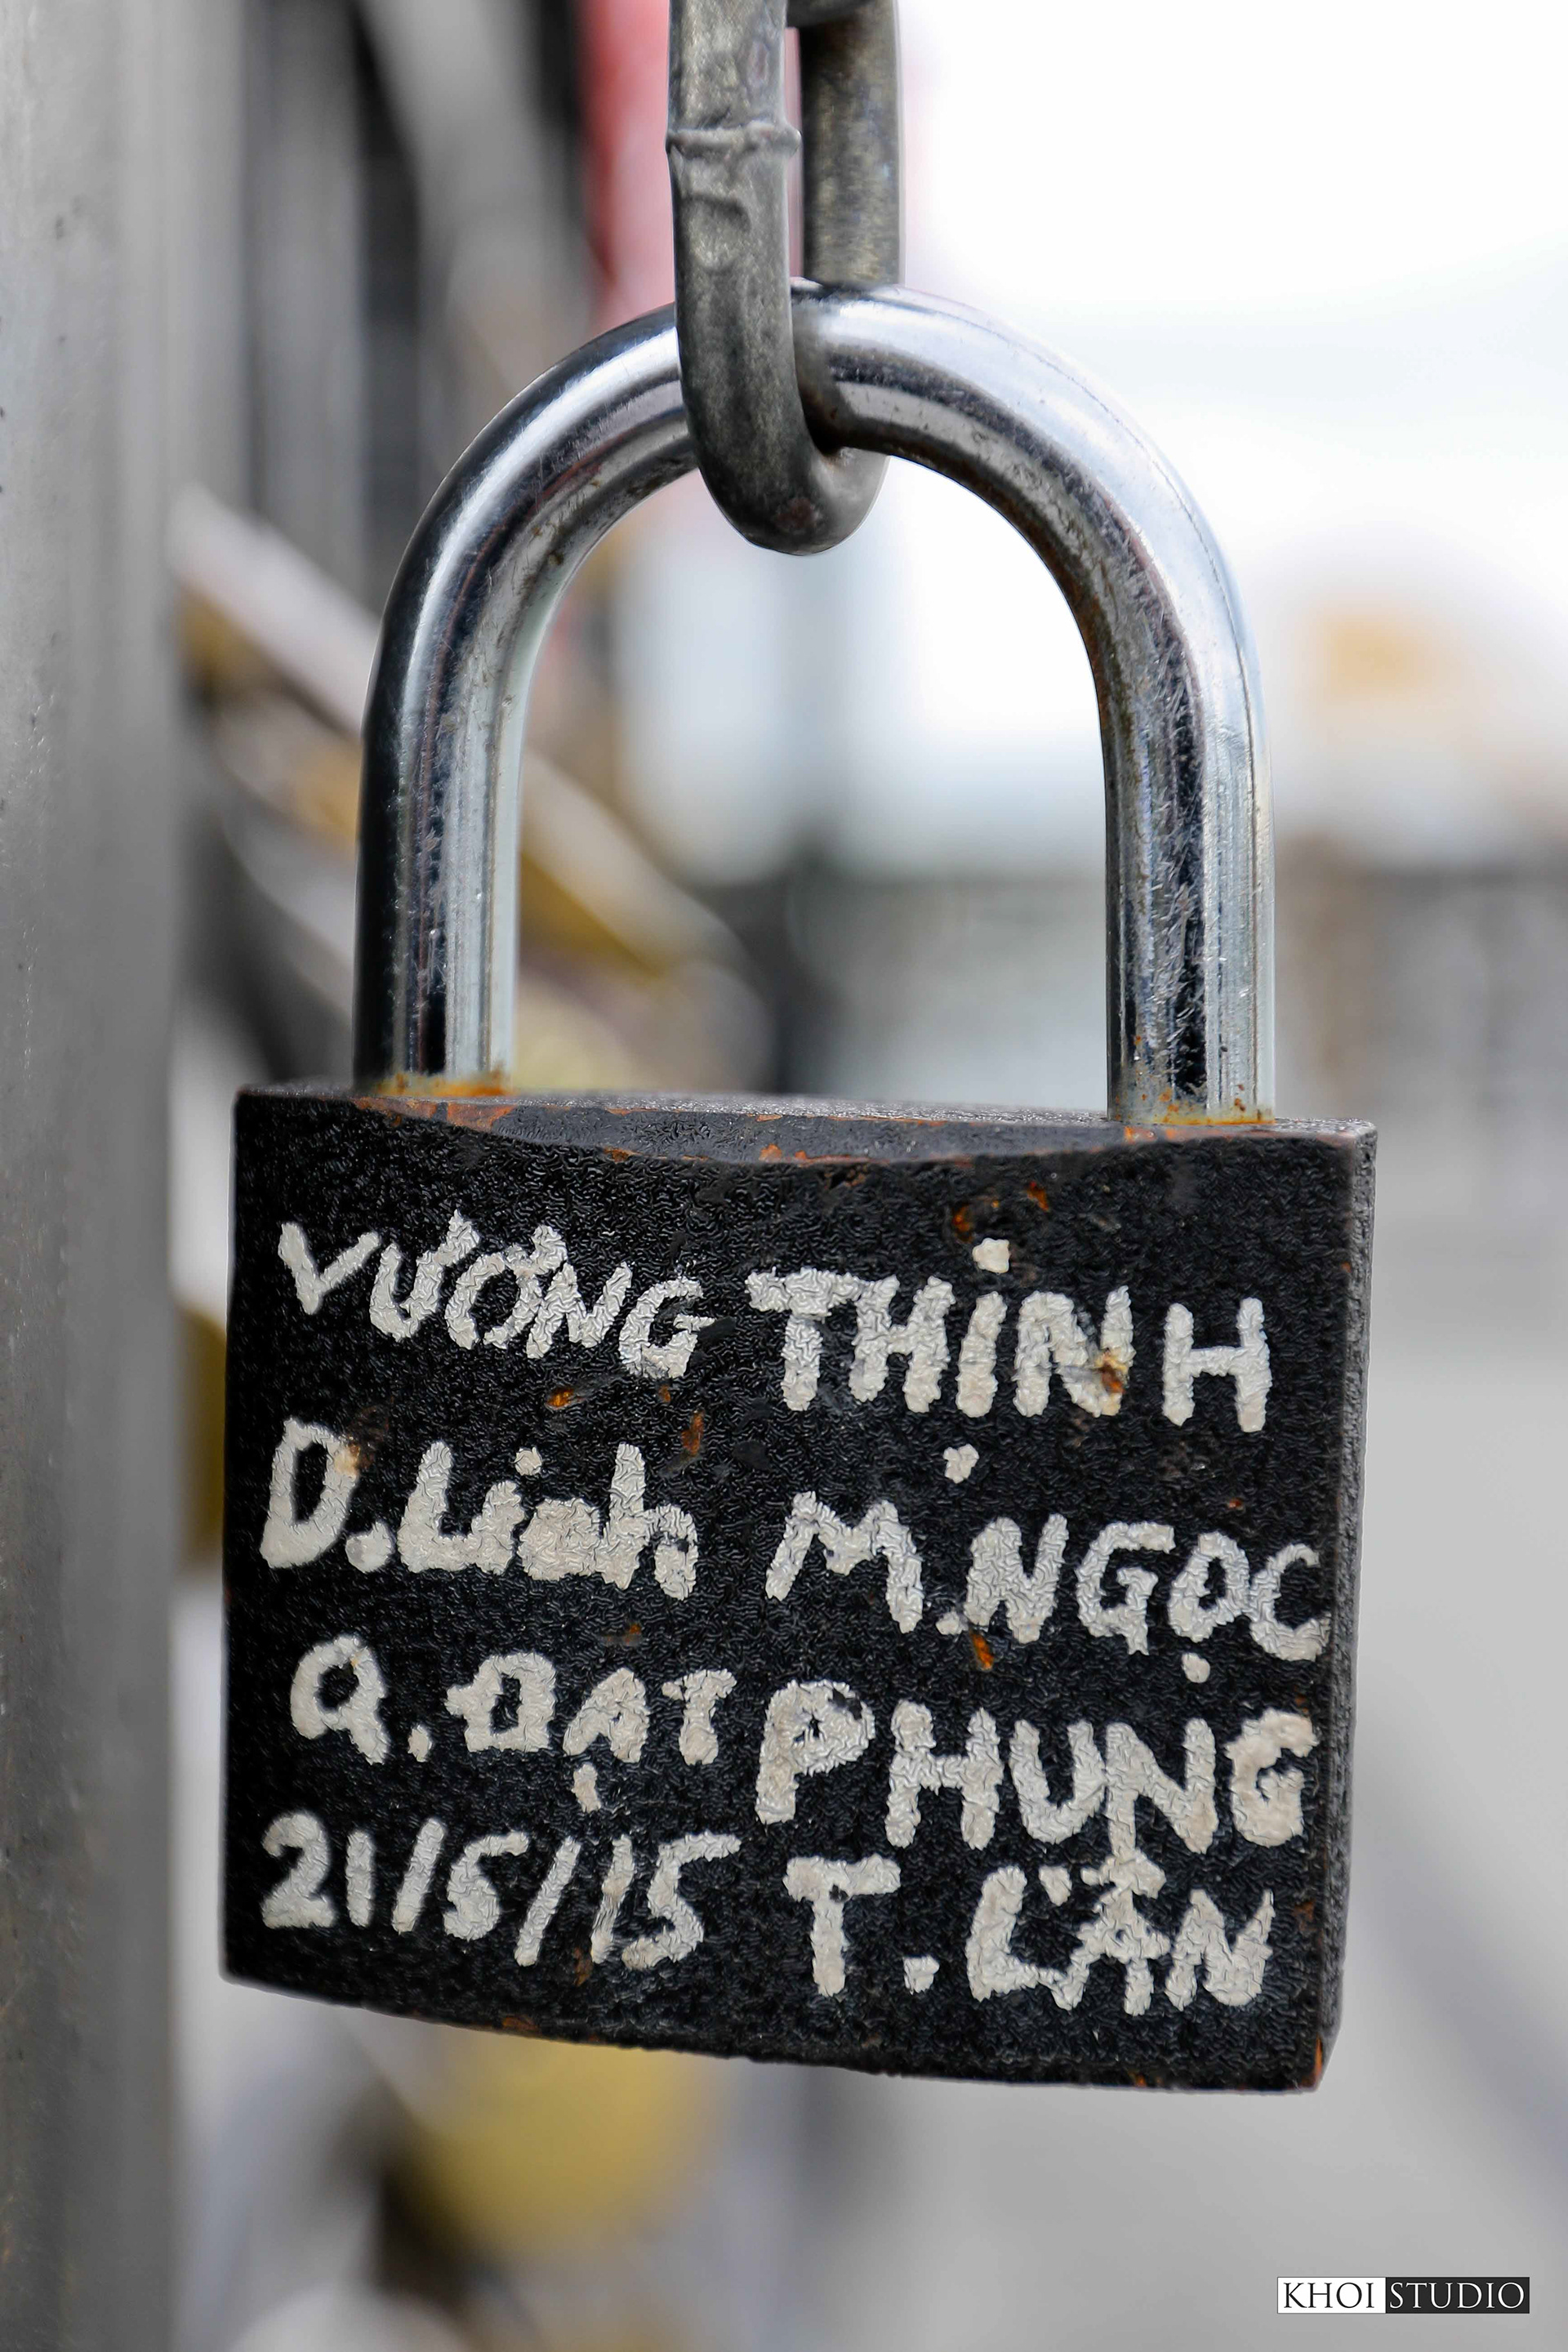 VƯƠNG THỊNH
D.Linh M.NGỌC
Q.ĐẠT PHỤNG
21/5/15 T.LÂN
KHOI STUDIO